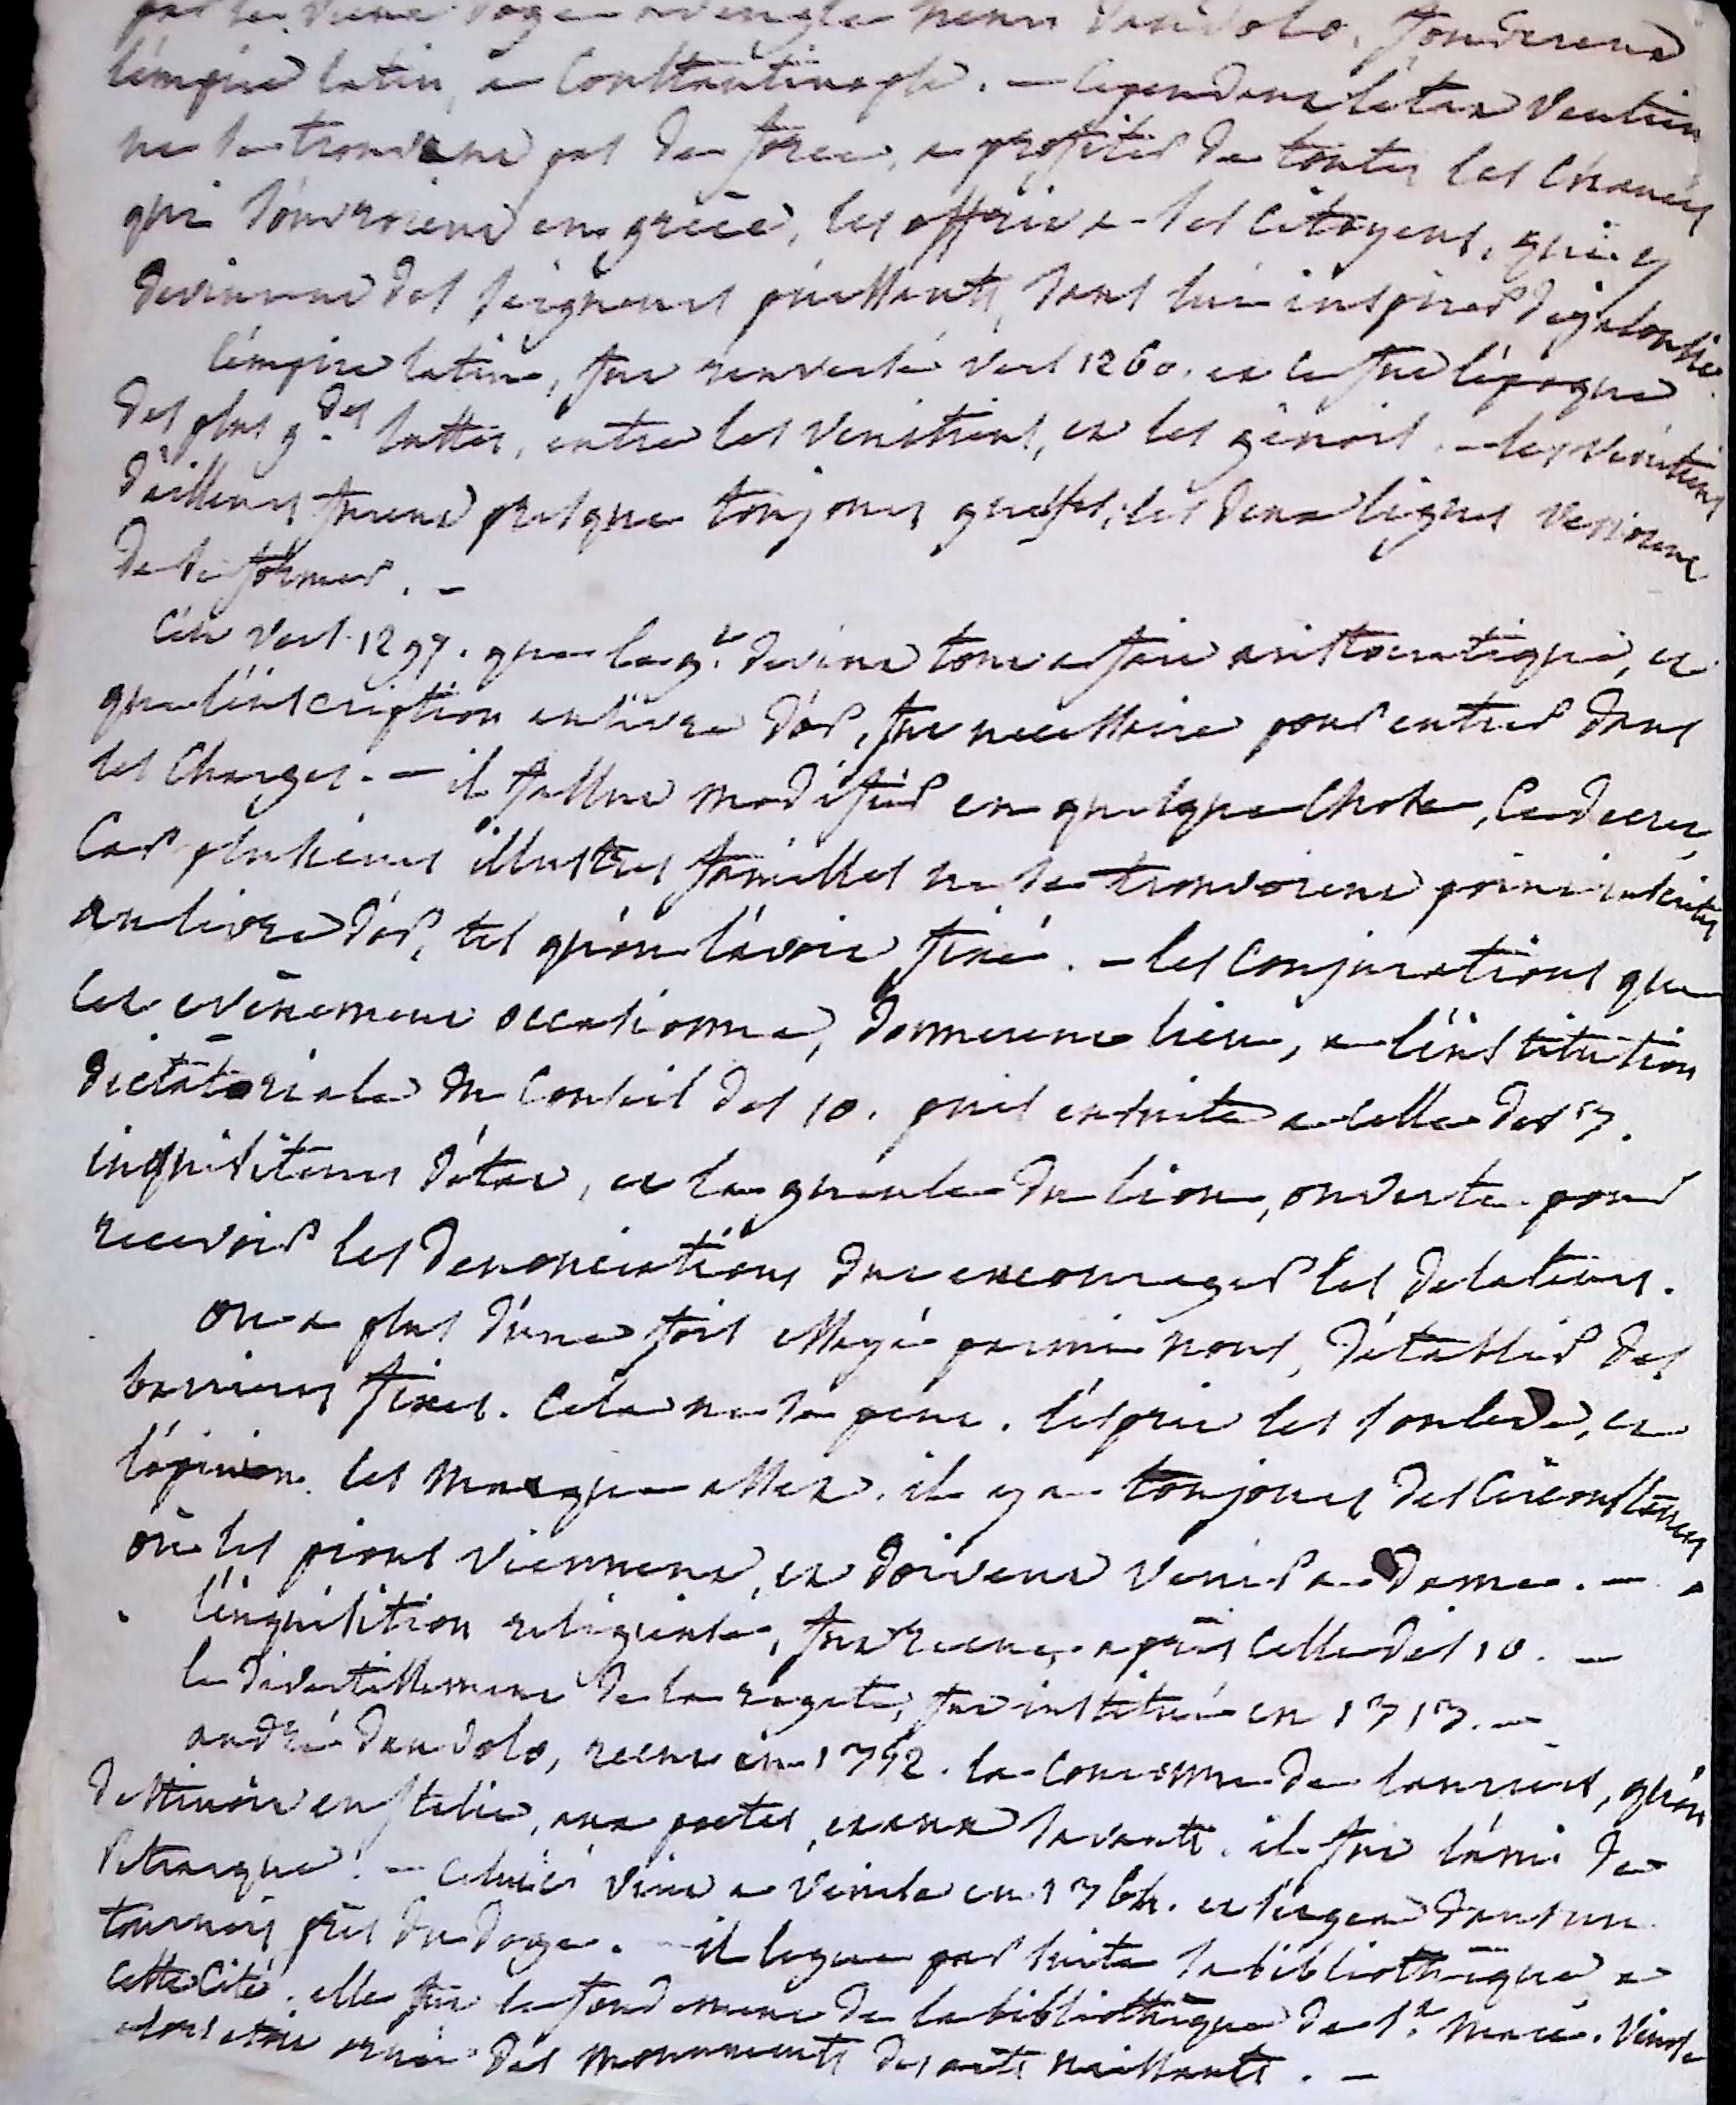 par le vieux doge aveugle henri dandolo, fonderent
l'empire latin, a Constantinople. — Cependant l'état venitien
ne se trouvant pas de force, a profiter de toutes les chances
qui s'ouvroient en grèce, les offrit a ses citoyens, qui y
devinrent des seigneurs puissants, sans lui inspirer de jalousie.
l'empire latin, fut renversé vers 1260. et ce fut l'époque
des plus g.des luttes, entre les venitiens, et les génois. — les vénitiens
d'ailleurs furent presque toujours guelfes, les deux ligues venoient
de se former. —
C'est vers 1297. que le g.t devint tout a fait aristocratique, et
que l'inscription au livre d'or, fut necessaire pour entrer dans
les charges. — il fallut modifier en quelque chose, ce decret,
Car plusieurs illustres familles ne se trouvoient point inscrites
au livre d'or, tel qu'on l'avoit fixé. — les conjurations que
cet evènement occasionna, donnerent lieu, a l'institution
dictatoriale du Conseil des 10. puis ensuite a celle des 3.
inquisiteurs d'état, et la gueule du lion, ouverte pour
recevoir les denonciations dut encourager les delateurs.
on a plus d'une fois essayé parmi nous, d'établir des
barrieres fixes. Cela ne se peut. l'esprit les souleve, et
l'opinion les marque assez. il y a toujours des circonstances
où les pions viennent, et doivent venir a dame. —
l'inquisition religieuse, fut recue, après celle des 10. —
le divertissement de la regate, fut institué en 1313. —
andré dandolo, recut en 1342. la couronne de lauriers, qu'on
destinoit en italie, aux poetes, et aux savants. il fut l'ami de
Petrarque. — celui ci vint a venise en 1364. et siegea dans un
tournois près du doge. — il legua par suite sa bibliothèque a
cette cité. elle fut le fondement de la bibliothèque de s.t marc. venise
alors etoit ornée des monuments des arts naissants. —